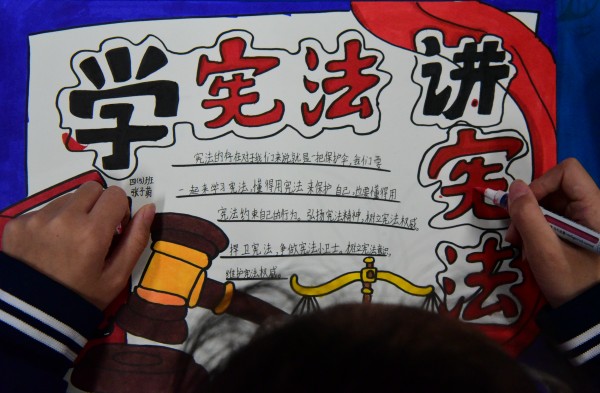 学宪法
讲宪法
四(5)班
张子菊
宪法的存在对于我们来说就是一把保护伞，我们要
一起来学习宪法，懂得用宪法来保护自己，也要懂得用
宪法约束自己的行为。弘扬宪法精神，树立宪法权威，
捍卫宪法，争做宪法小卫士。树立宪法意识，
维护宪法权威。